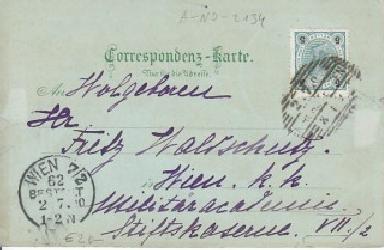 A-ND-2134
Correspondenz-Karte.
Nur für die Adresse.
An Wolgeboren
Hr
Fritz Waltschutz.
Wien. k. k.
Militäracademie.
Stiftskaserne. VII./2
WIEN 7/2
62
BESTELLT
2. 7.
1-2 N